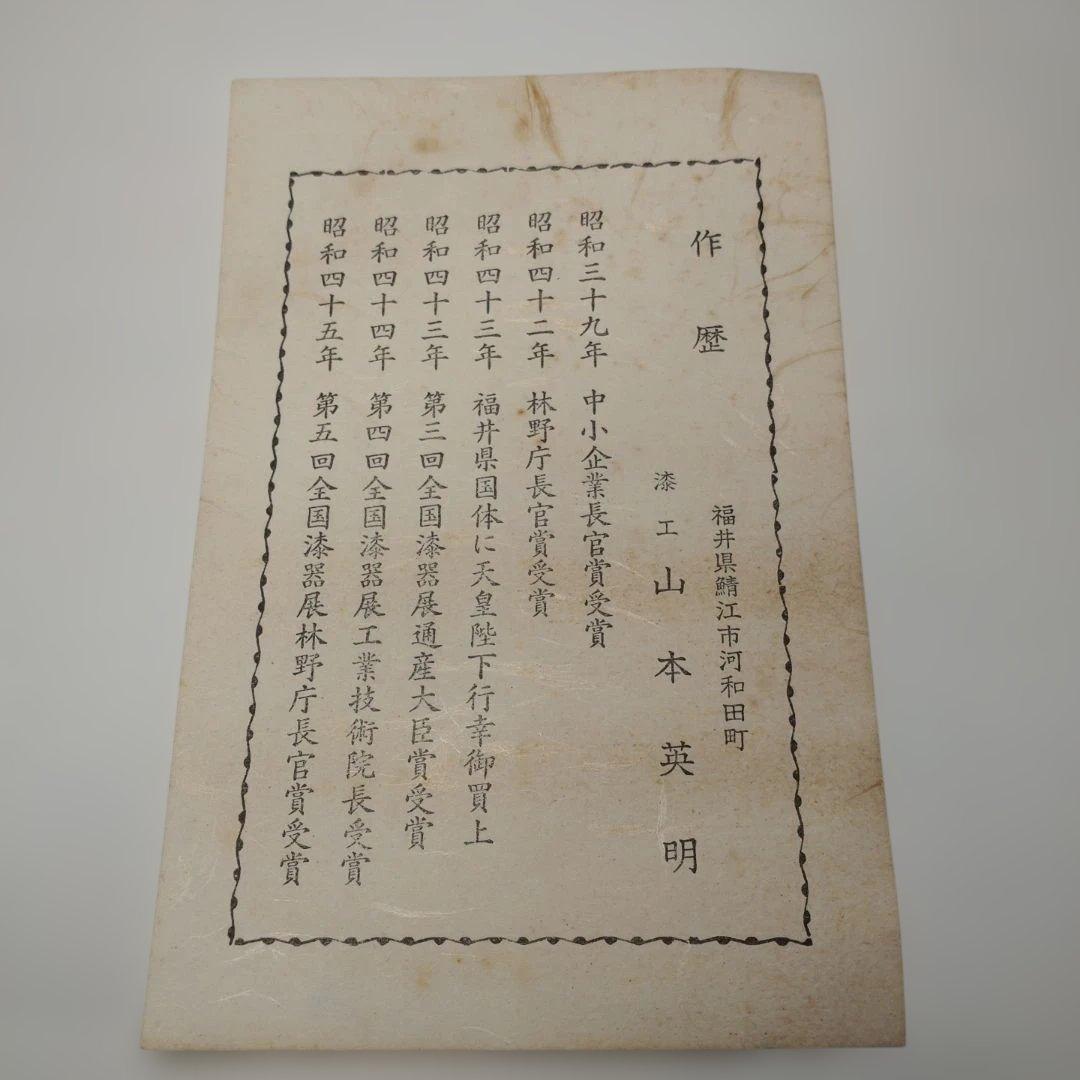 作歴
福井県鯖江市河和田町
漆工 山本英明
昭和三十九年 中小企業長官賞受賞
昭和四十二年 林野庁長官賞受賞
昭和四十三年 福井県国体に天皇陛下行幸御買上
昭和四十三年 第三回全国漆器展通産大臣賞受賞
昭和四十四年 第四回全国漆器展工業技術院長受賞
昭和四十五年 第五回全国漆器展林野庁長官賞受賞